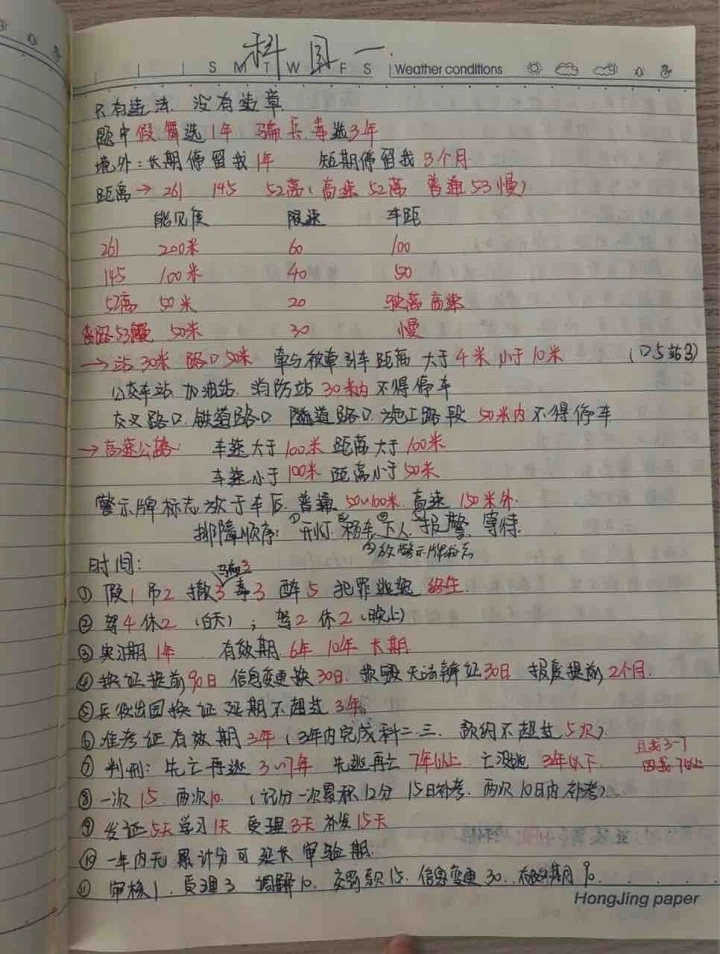 科目一
S M T W T F S Weather conditions
只有违法 没有违章
题中假.舞选1年 骗.兵.毒选3年
境外:长期停留我1年 短期停留我3个月
距离→ 261 145 52离(高速52离 普通53慢)
能见度 限速 车距
261 200米 60 100
145 100米 40 50
52离 50米 20 驶离高速
普路53慢 50米 30 慢
→站30米 路口50米 车与被牵引车距离 大于4米 小于10米 (口5站3)
公交车站 加油站 消防站 30米内 不得停车
交叉路口.铁道路口 隧道路口.施工路段 50米内 不得停车
→高速公路: 车速大于100米 距离大于100米
车速小于100米 距离小于50米
警示牌标志放于车后.普通50~100米 高速 150米外.
排障顺序:①开灯 ②移车 ③下人.报警.等待.
④放警示牌标志
时间: 骗3
① 假1 吊2 撤3 毒3 醉5 犯罪逃逸 终生.
② 驾4休2 (白天); 驾2休2(晚上)
③ 实习期1年 有效期 6年 10年 长期
④ 换证提前90日 信息变更换30日. 损毁无法辨证30日 报废提前2个月.
⑤ 兵役出国换证延期不超过3年.
⑥ 准考证有效期3年(3年内完成科二.三. 预约不超过5次)
⑦ 判刑: 先亡再逃 3~7年 先逃再亡 7年以上 亡没逃 3年以下. 且逃3-7
因逃7以上
⑧ 一次15. 两次10. (记分一次累积12分 15日补考. 两次10日内补考).
⑨ 发证5天 学习1天 受理3天 补发15天
⑩ 一年内无累计分可延长审验期.
⑪ 审核1. 受理3 调解10. 交罚款15. 信息变更30. 有效期90.
HongJing paper